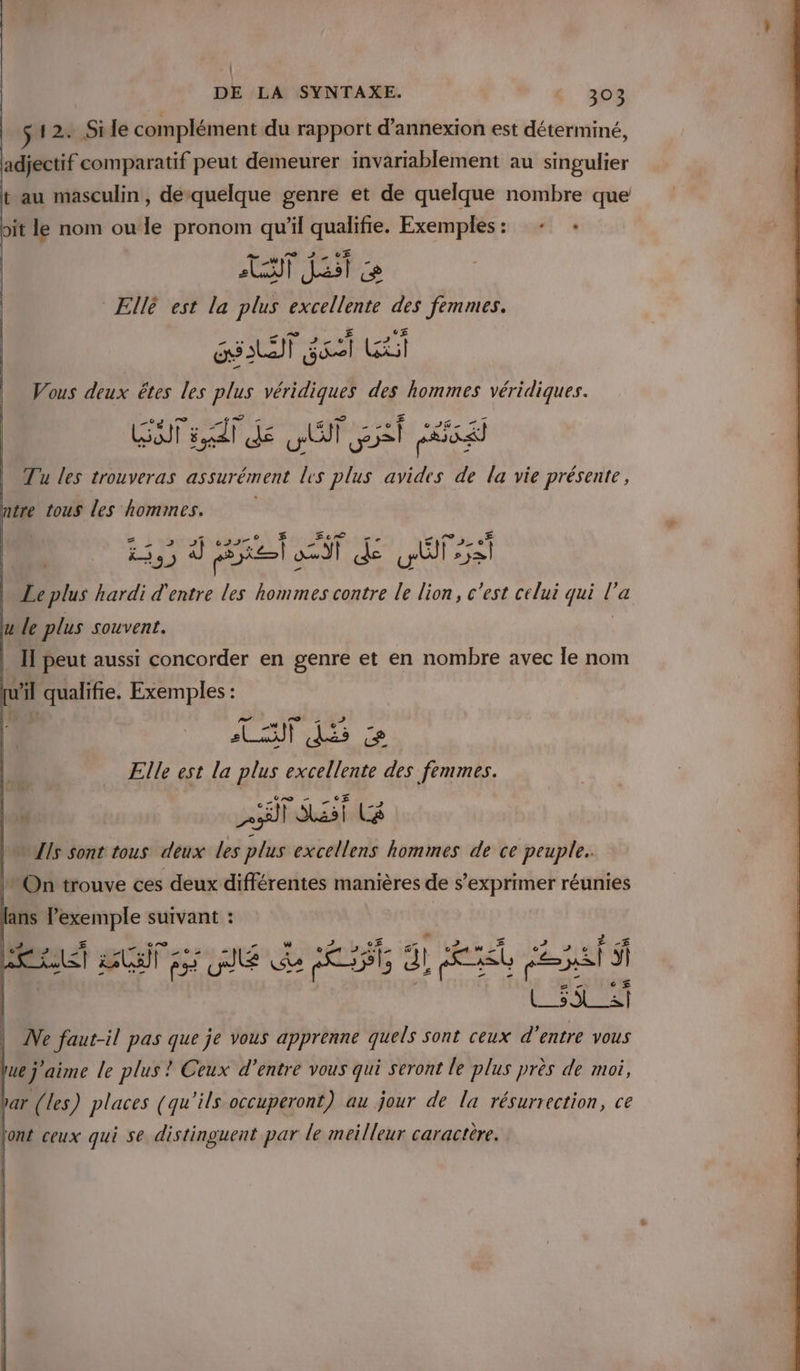 DE LA SYNTAXE. 303
512. Si le complément du rapport d'annexion est déterminé,
adjectif comparatif peut demeurer invariablement au singulier
t au masculin, de quelque genre et de quelque nombre que
oit le nom ou le pronom qu'il qualifie. Exemples:
هِيَ أَفْضَلُ ٱلنِّسَاءِ
Elle est la plus excellente des femmes.
أَنْتُمَا أَصْدَقُ ٱلصَّادِقِينَ
Vous deux êtes les plus véridiques des hommes véridiques.
لَتَجِدَنَّهُمْ أَحْرَصَ ٱلنَّاسِ عَلَى ٱلْحَيٰوةِ ٱلدُّنْيَا
Tu les trouveras assurément les plus avides de la vie présente,
ntre tous les hommes.
أَجْرَأُ ٱلنَّاسِ عَلَى ٱلْأَسَدِ أَكْثَرُهُمْ لَهُ رُؤْيَةً
Le plus hardi d'entre les hommes contre le lion, c'est celui qui l'a
u le plus souvent.
Il peut aussi concorder en genre et en nombre avec le nom
u'il qualifie. Exemples:
هِيَ فُضْلَى ٱلنِّسَاءِ
Elle est la plus excellente des femmes.
هُمَا أَفْضَلَا ٱلْقَوْمِ
Ils sont tous deux les plus excellens hommes de ce peuple.
On trouve ces deux différentes manières de s'exprimer réunies
ans l'exemple suivant :
أَلَا أُخْبِرُكُمْ بِأَحَبِّكُمْ إِلَيَّ وَأَقْرَبِكُمْ مِنِّي مَجَالِسَ يَوْمَ ٱلْقِيَامَةِ أَحَاسِنُكُمْ
أَخْلَاقًا
Ne faut-il pas que je vous apprenne quels sont ceux d'entre vous
que j'aime le plus! Ceux d'entre vous qui seront le plus près de moi,
par (les) places (qu'ils occuperont) au jour de la résurrection, ce
ont ceux qui se distinguent par le meilleur caractère.